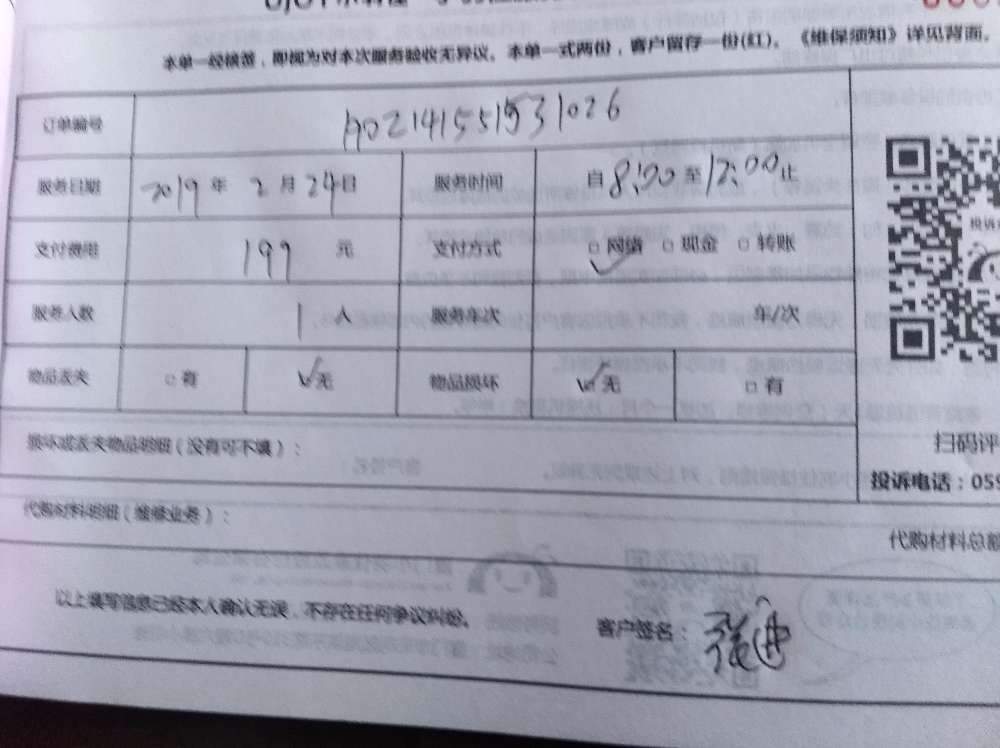 本单一经横签，即视为对本次服务验收无异议。本单一式两份，客户留存一份(红)。《维保须知》详见背面。
订单编号 A02141551531026
服务日期 2019 年 2 月 24 日 服务时间 自 8:00 至 12:00 止
支付费用 199 元 支付方式 □ 网络 □ 现金 □ 转账
服务人数 1 人 服务车次 车/次
投诉
物品丢失 □ 有 ☑ 无 物品损坏 ☑ 无 □ 有
损坏或丢失物品明细（没有可不填）：
扫码评
投诉电话：059
代购材料明细（维修业务）：
代购材料总额
以上填写信息已经本人确认无误，不存在任何争议纠纷。
客户签名：张迪